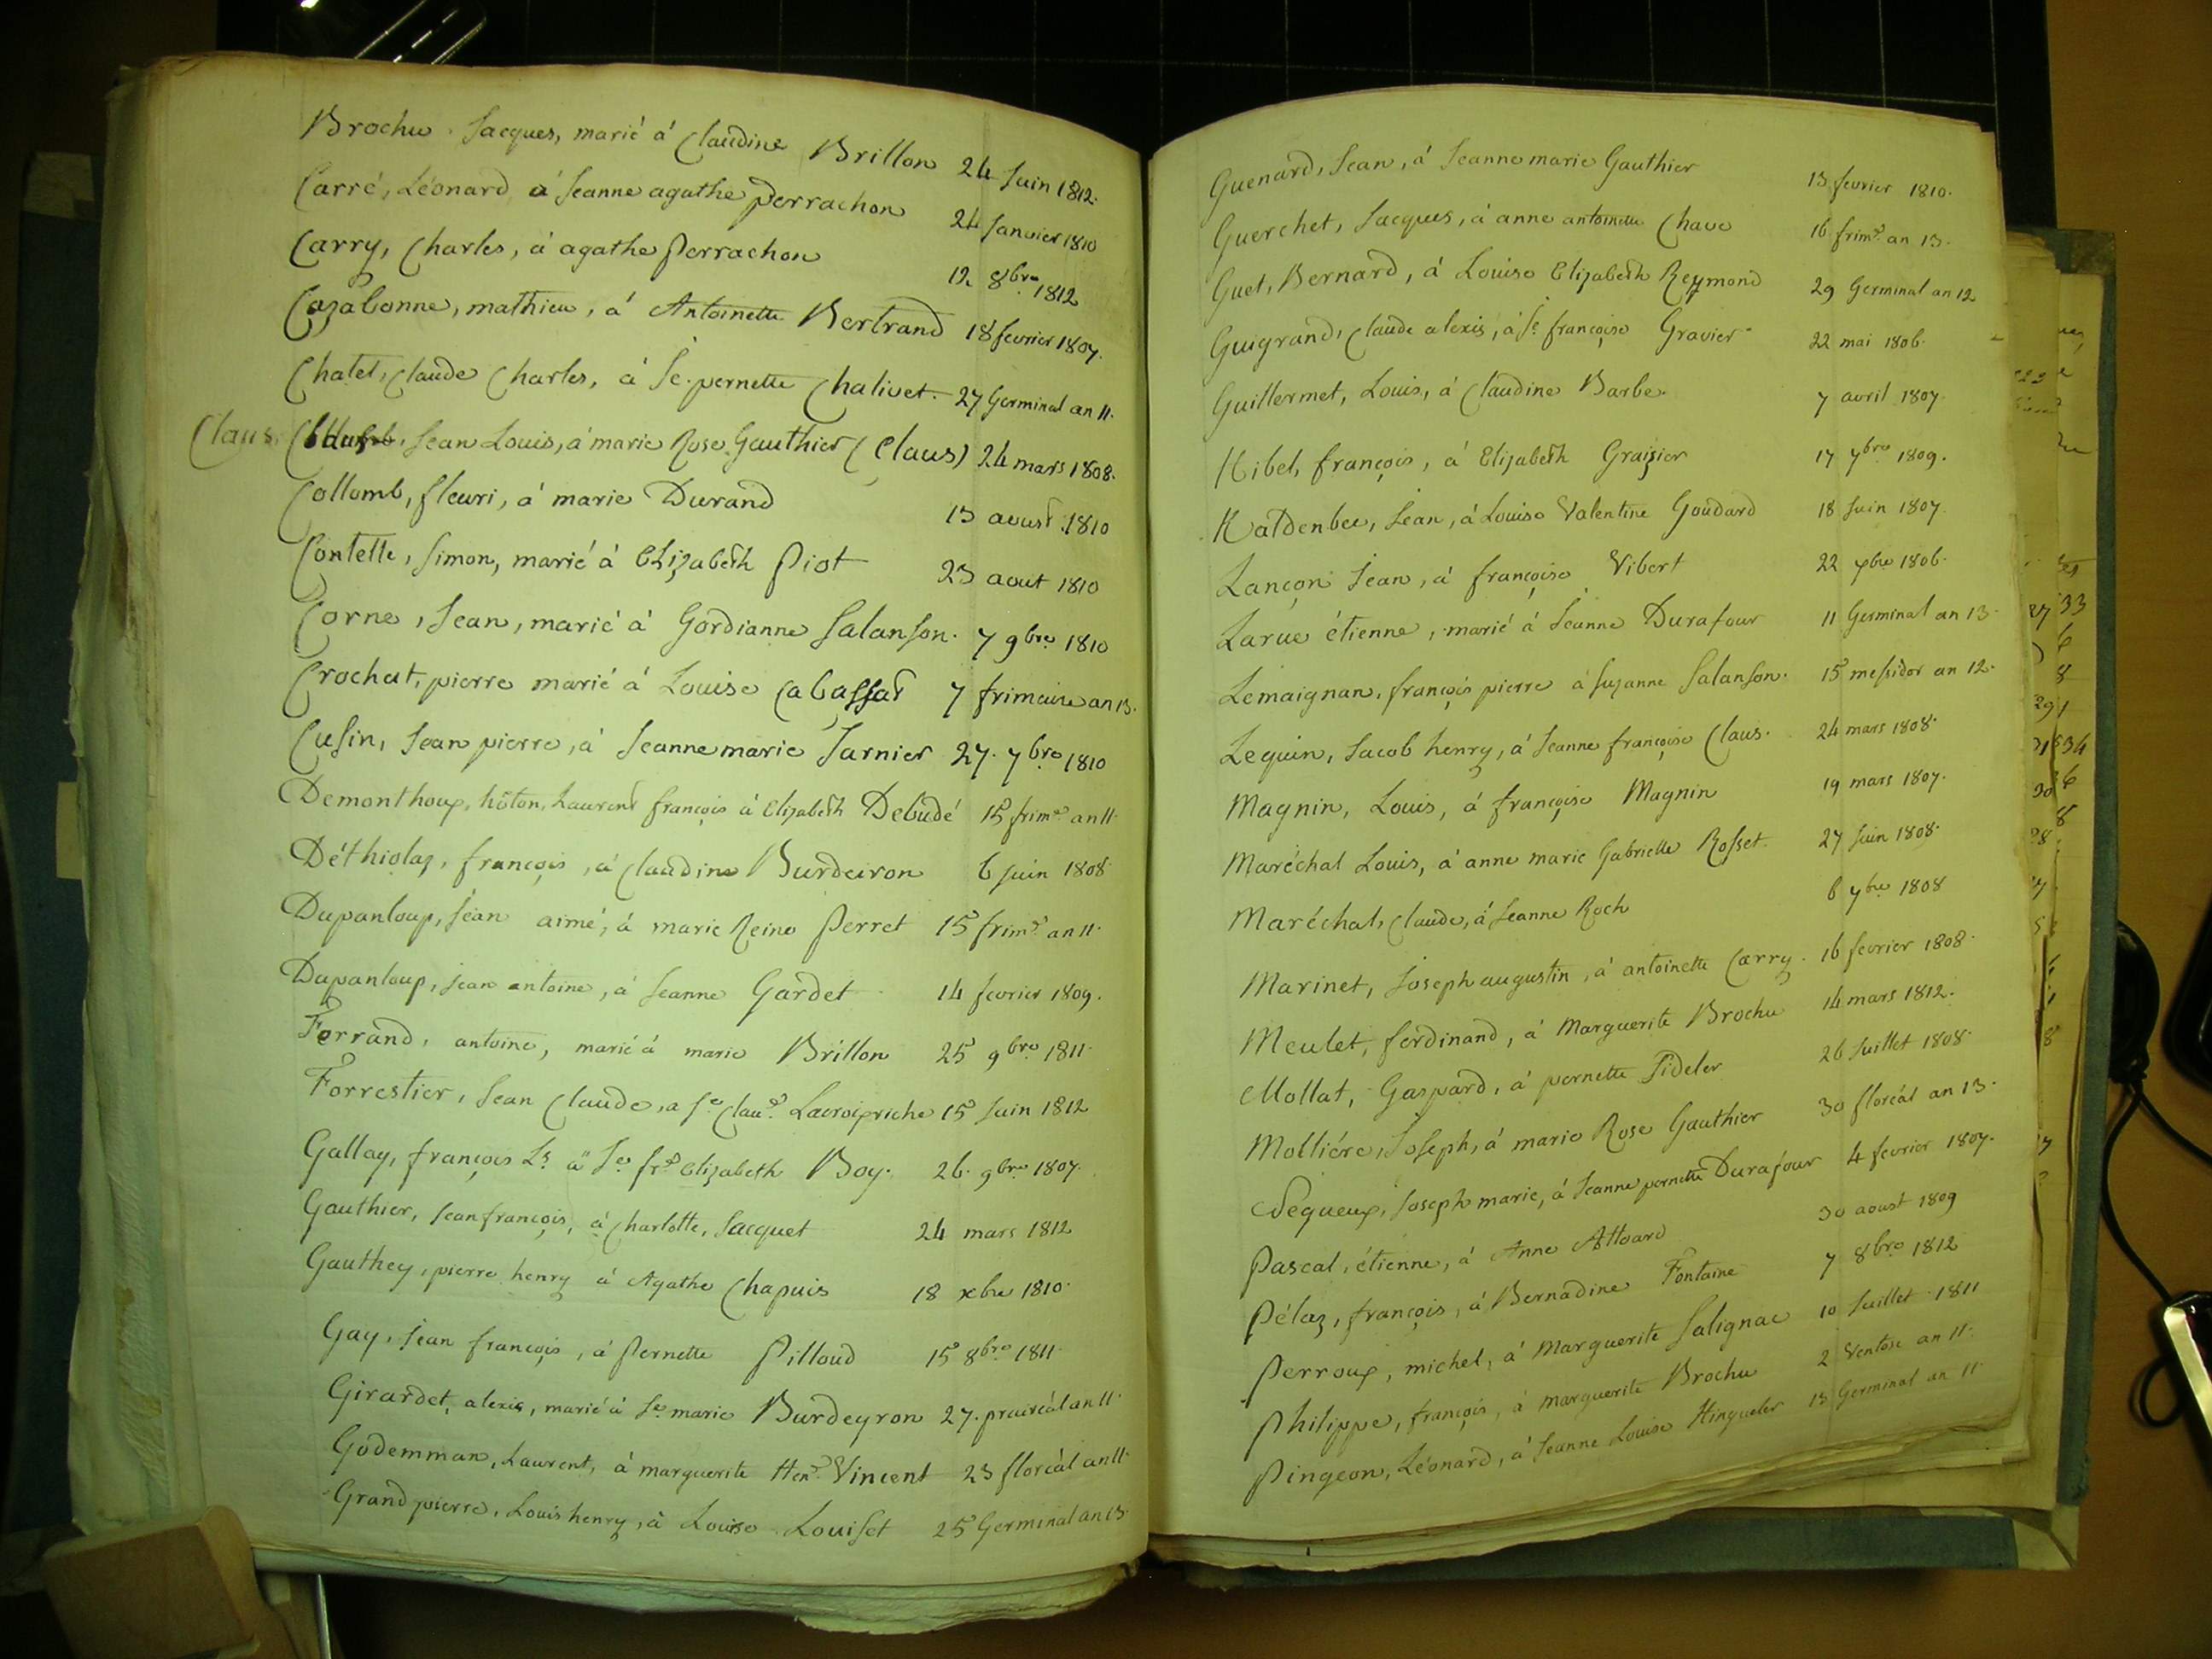 Brochu Jacques, marié á Claudine Brillon 24 Juin 1812.
Carré, Léonard á Jeanne agathe perrachon 24 Janvier 1810
Carry, Charles, á agathe perrachon 12 8bre 1812
Cazabonne, mathieu, á Antoinette Bertrand 18 fevrier 1807.
Chatel, Claude Charles, á Je. pernette Chalivet. 27 Germinal an 11.
Claus, Jean Louis, á marie Rose Gauthier (Claus) 24 mars 1808.
Collomb, fleuri, á marie Durand 13 aoust 1810
Contette, Simon, marié á Elizabeth Piot 23 aout 1810
Corne, Jean, marié á Gordianne Salanson. 7 9bre 1810
Crochat, pierre marié á Louise Cabassat 7 frimaire an 13.
Cusin, Jean pierre, á Jeanne marie Jarnier 27. 7bre 1810
Demonthoux, hôton, Laurent françois á Elizabeth Debudé 15 frimre an 11.
Déthiolaz, françois, á Claudine Burdeiron 6 Juin 1808
Dupanloup, Jean aimé, á marie Reine Perret 15 frimre an 11.
Dupanloup, jean antoine, á Jeanne Gardet 14 fevrier 1809.
Ferrand, antoine, marié á marie Brillon 25 9bre 1811.
Forrestier, Jean Claude, a Je Claude Lacroixriche 15 Juin 1812
Gallay, françois Ls á Je frse Elizabeth Boy. 26. 9bre 1807.
Gauthier, Jean françois, á Charlotte, Jacquet 24 mars 1812
Gauthey, pierre henry á Agathe Chapuis 18 xbre 1810.
Gay, Jean françois, á Pernette Pilloud 15 8bre 1811.
Girardet, alexis, marié á Je marie Burdeyron 27. prairéal an 11.
Godemman, Laurent, á marguerite Henre Vincent 23 floréal an 11.
Grandpierre, Louis henry, á Louise Louiset 25 Germinal an 13.
Guenard, Jean, á Jeanne marie Gauthier 13 fevrier 1810.
Guerchet, Jacques, á anne antoinette Chave 16 frimre an 13.
Guet, Bernard, á Louise Elizabeth Reymond 29 Germinal an 12
Guigrand, Claude alexis, á Je françoise Gravier 22 mai 1806.
Guillermet, Louis, á Claudine Barbe. 7 avril 1807.
Hibel, françois, á Elizabeth Graizier 17 7bre 1809.
Kaldenbec, Jean, á Louise Valentine Goudard 18 Juin 1807.
Lançon Jean, á françoise Vibert 22 7bre 1806.
Larue étienne, marié á Jeanne Durafour 11 Germinal an 13.
Lemaignan, françois pierre á suzanne Salanson. 15 messidor an 12.
Lequin, Jacob henry, á Jeanne françoise Claus. 24 mars 1808.
Magnin, Louis, á françoise Magnin 19 mars 1807.
Maréchal Louis, á anne marie Gabrielle Rosset. 27 Juin 1808.
Maréchal, Claude, á Jeanne Roch 6 7bre 1808
Marinet, Joseph augustin, á antoinette Carry. 16 fevrier 1808.
Meulet, ferdinand, á Marguerite Brochu 14 mars 1812.
Mollat, Gaspard, á pernette Fideler 26 Juillet 1808.
Molliére, Joseph, á marie Rose Gauthier 30 floréal an 13.
Pequeux, Joseph marie, á Jeanne pernette Durafour 4 fevrier 1807.
Pascal, étienne, á Anne Alloard 30 aoust 1809
Pélaz, françois, á Bernadine Fontaine 7 8bre 1812
Perroux, michel, á Marguerite Salignac 10 Juillet 1811
Philippe, françois, á marguerite Brochu 2 Ventose an 11.
Pingeon, Léonard, á Jeanne Louise Hingueler 13 Germinal an 11